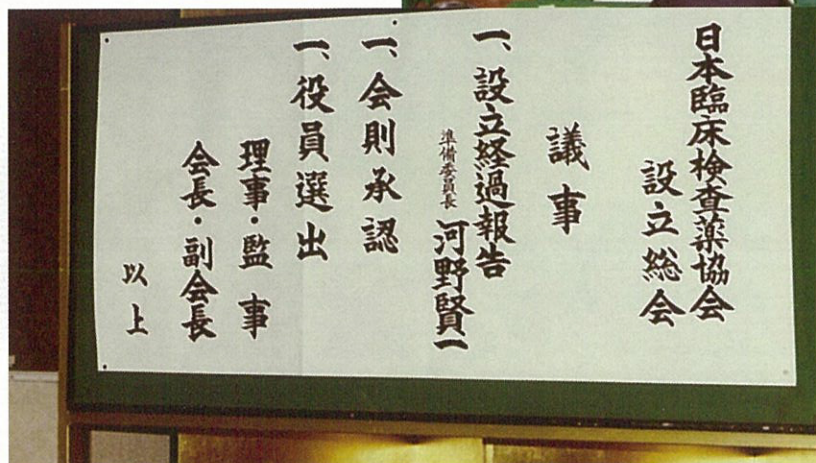 日本臨床検査薬協会
設立総会
議事
一、設立経過報告
準備委員長 河野賢一
一、会則承認
一、役員選出
理事・監事
会長・副会長
以上